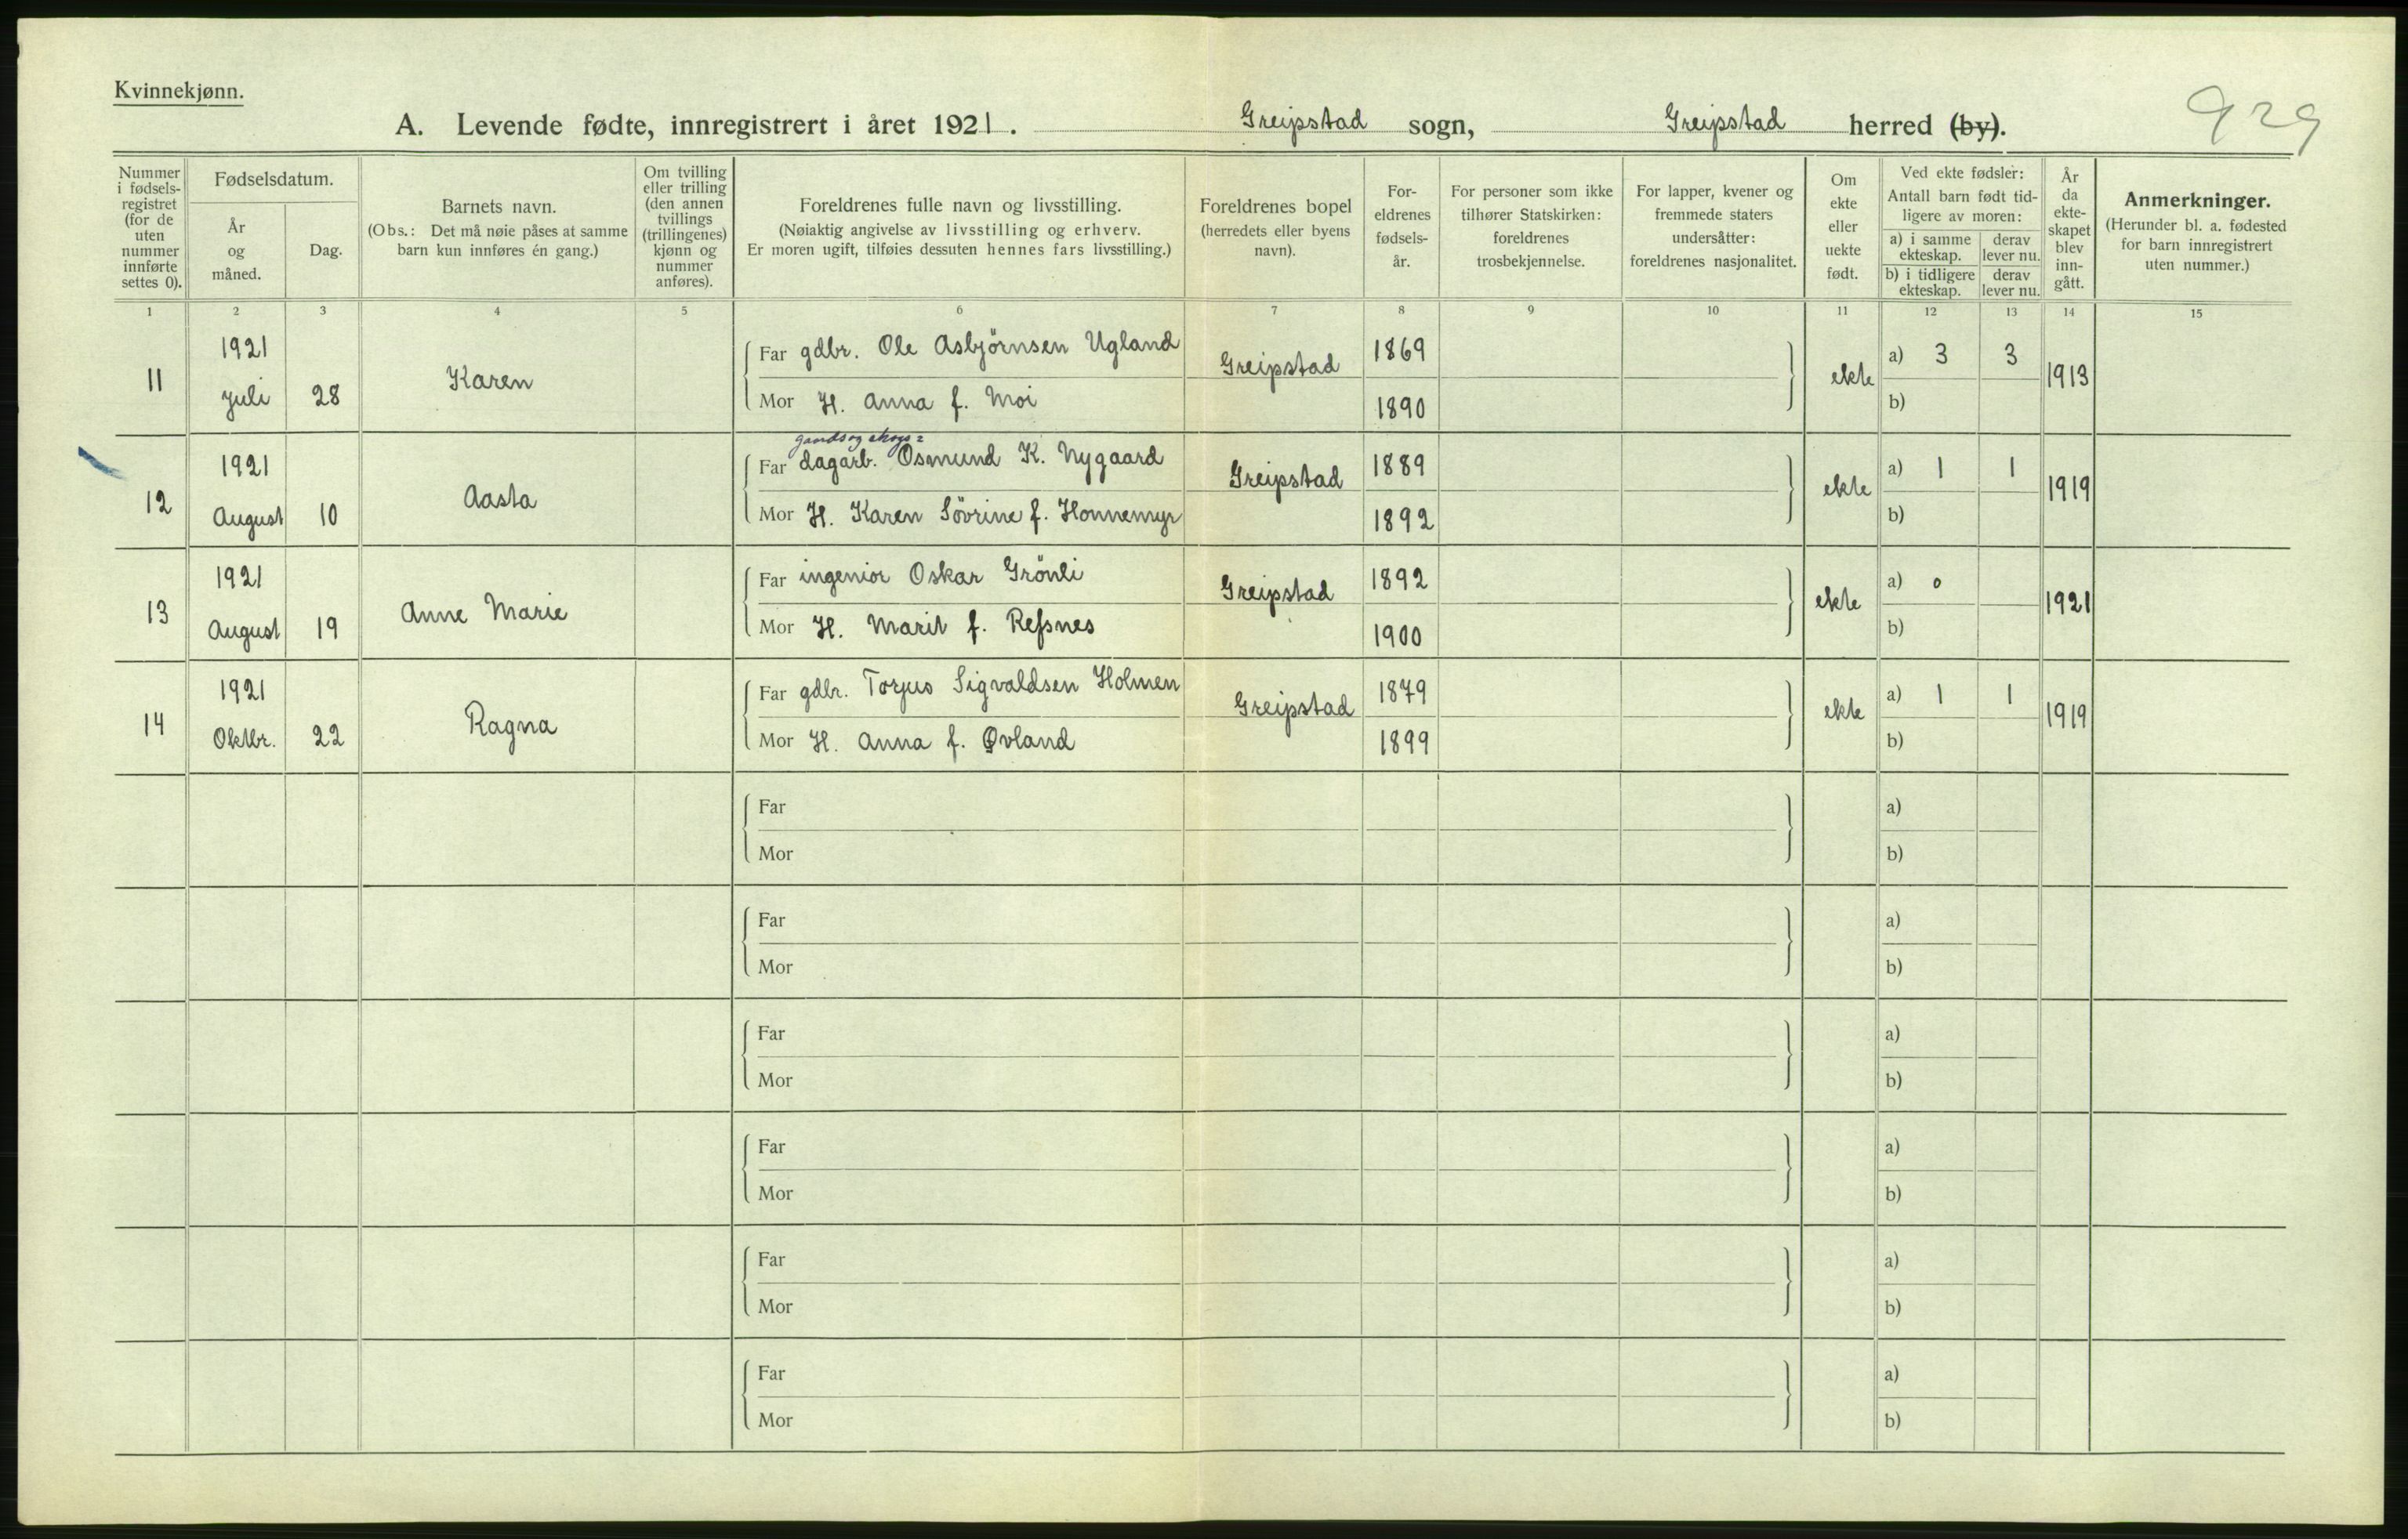 Kvinnekjønn.
A. Levende fødte, innregistrert i året 1921. Greipstad sogn, Greipstad herred (by).
929
Nummer i fødsels-registret (for de uten nummer innførte settes 0).
Fødselsdatum.
År og måned.
Dag.
Barnets navn.
(Obs.: Det må nøie påses at samme barn kun innføres én gang.)
Om tvilling eller trilling (den annen tvillings (trillingenes) kjønn og nummer anføres).
Foreldrenes fulle navn og livsstilling.
(Nøiaktig angivelse av livsstilling og erhverv.
Er moren ugift, tilføies dessuten hennes fars livsstilling.)
Foreldrenes bopel
(herredets eller byens navn).
For-eldrenes fødsels-år.
For personer som ikke tilhører Statskirken: foreldrenes trosbekjennelse.
For lapper, kvener og fremmede staters undersåtter: foreldrenes nasjonalitet.
Om ekte eller uekte født.
Ved ekte fødsler:
Antall barn født tid-ligere av moren:
a) i samme ekteskap.
derav lever nu.
b) i tidligere ekteskap.
derav lever nu.
År da ekte-skapet blev inn-gått.
Anmerkninger.
(Herunder bl. a. fødested for barn innregistrert uten nummer.)
1 2 3 4 5 6 7 8 9 10 11 12 13 14 15
11 1921 Juli 28 Karen
Far gdbr. Ole Asbjörnsen Ugland Greipstad 1869 ekte a) 3 3 1913
Mor H. Anna f. Moi 1890 b)
12 1921 August 10 Aasta
gaards og skogs=
Far dagarb. Osmund K. Nygaard Greipstad 1889 ekte a) 1 1 1919
Mor H. Karen Sövrine f. Honnemyr 1892 b)
13 1921 August 19 Anne Marie
Far ingeniör Oskar Grönli Greipstad 1892 ekte a) 0 1921
Mor H. Marit f. Refsnes 1900 b)
14 1921 Oktbr. 22 Ragna
Far gdbr. Torjus Sigvaldsen Holmen Greipstad 1879 ekte a) 1 1 1919
Mor H. Anna f. Øvland 1899 b)
Far a)
Mor b)
Far a)
Mor b)
Far a)
Mor b)
Far a)
Mor b)
Far a)
Mor b)
Far a)
Mor b)